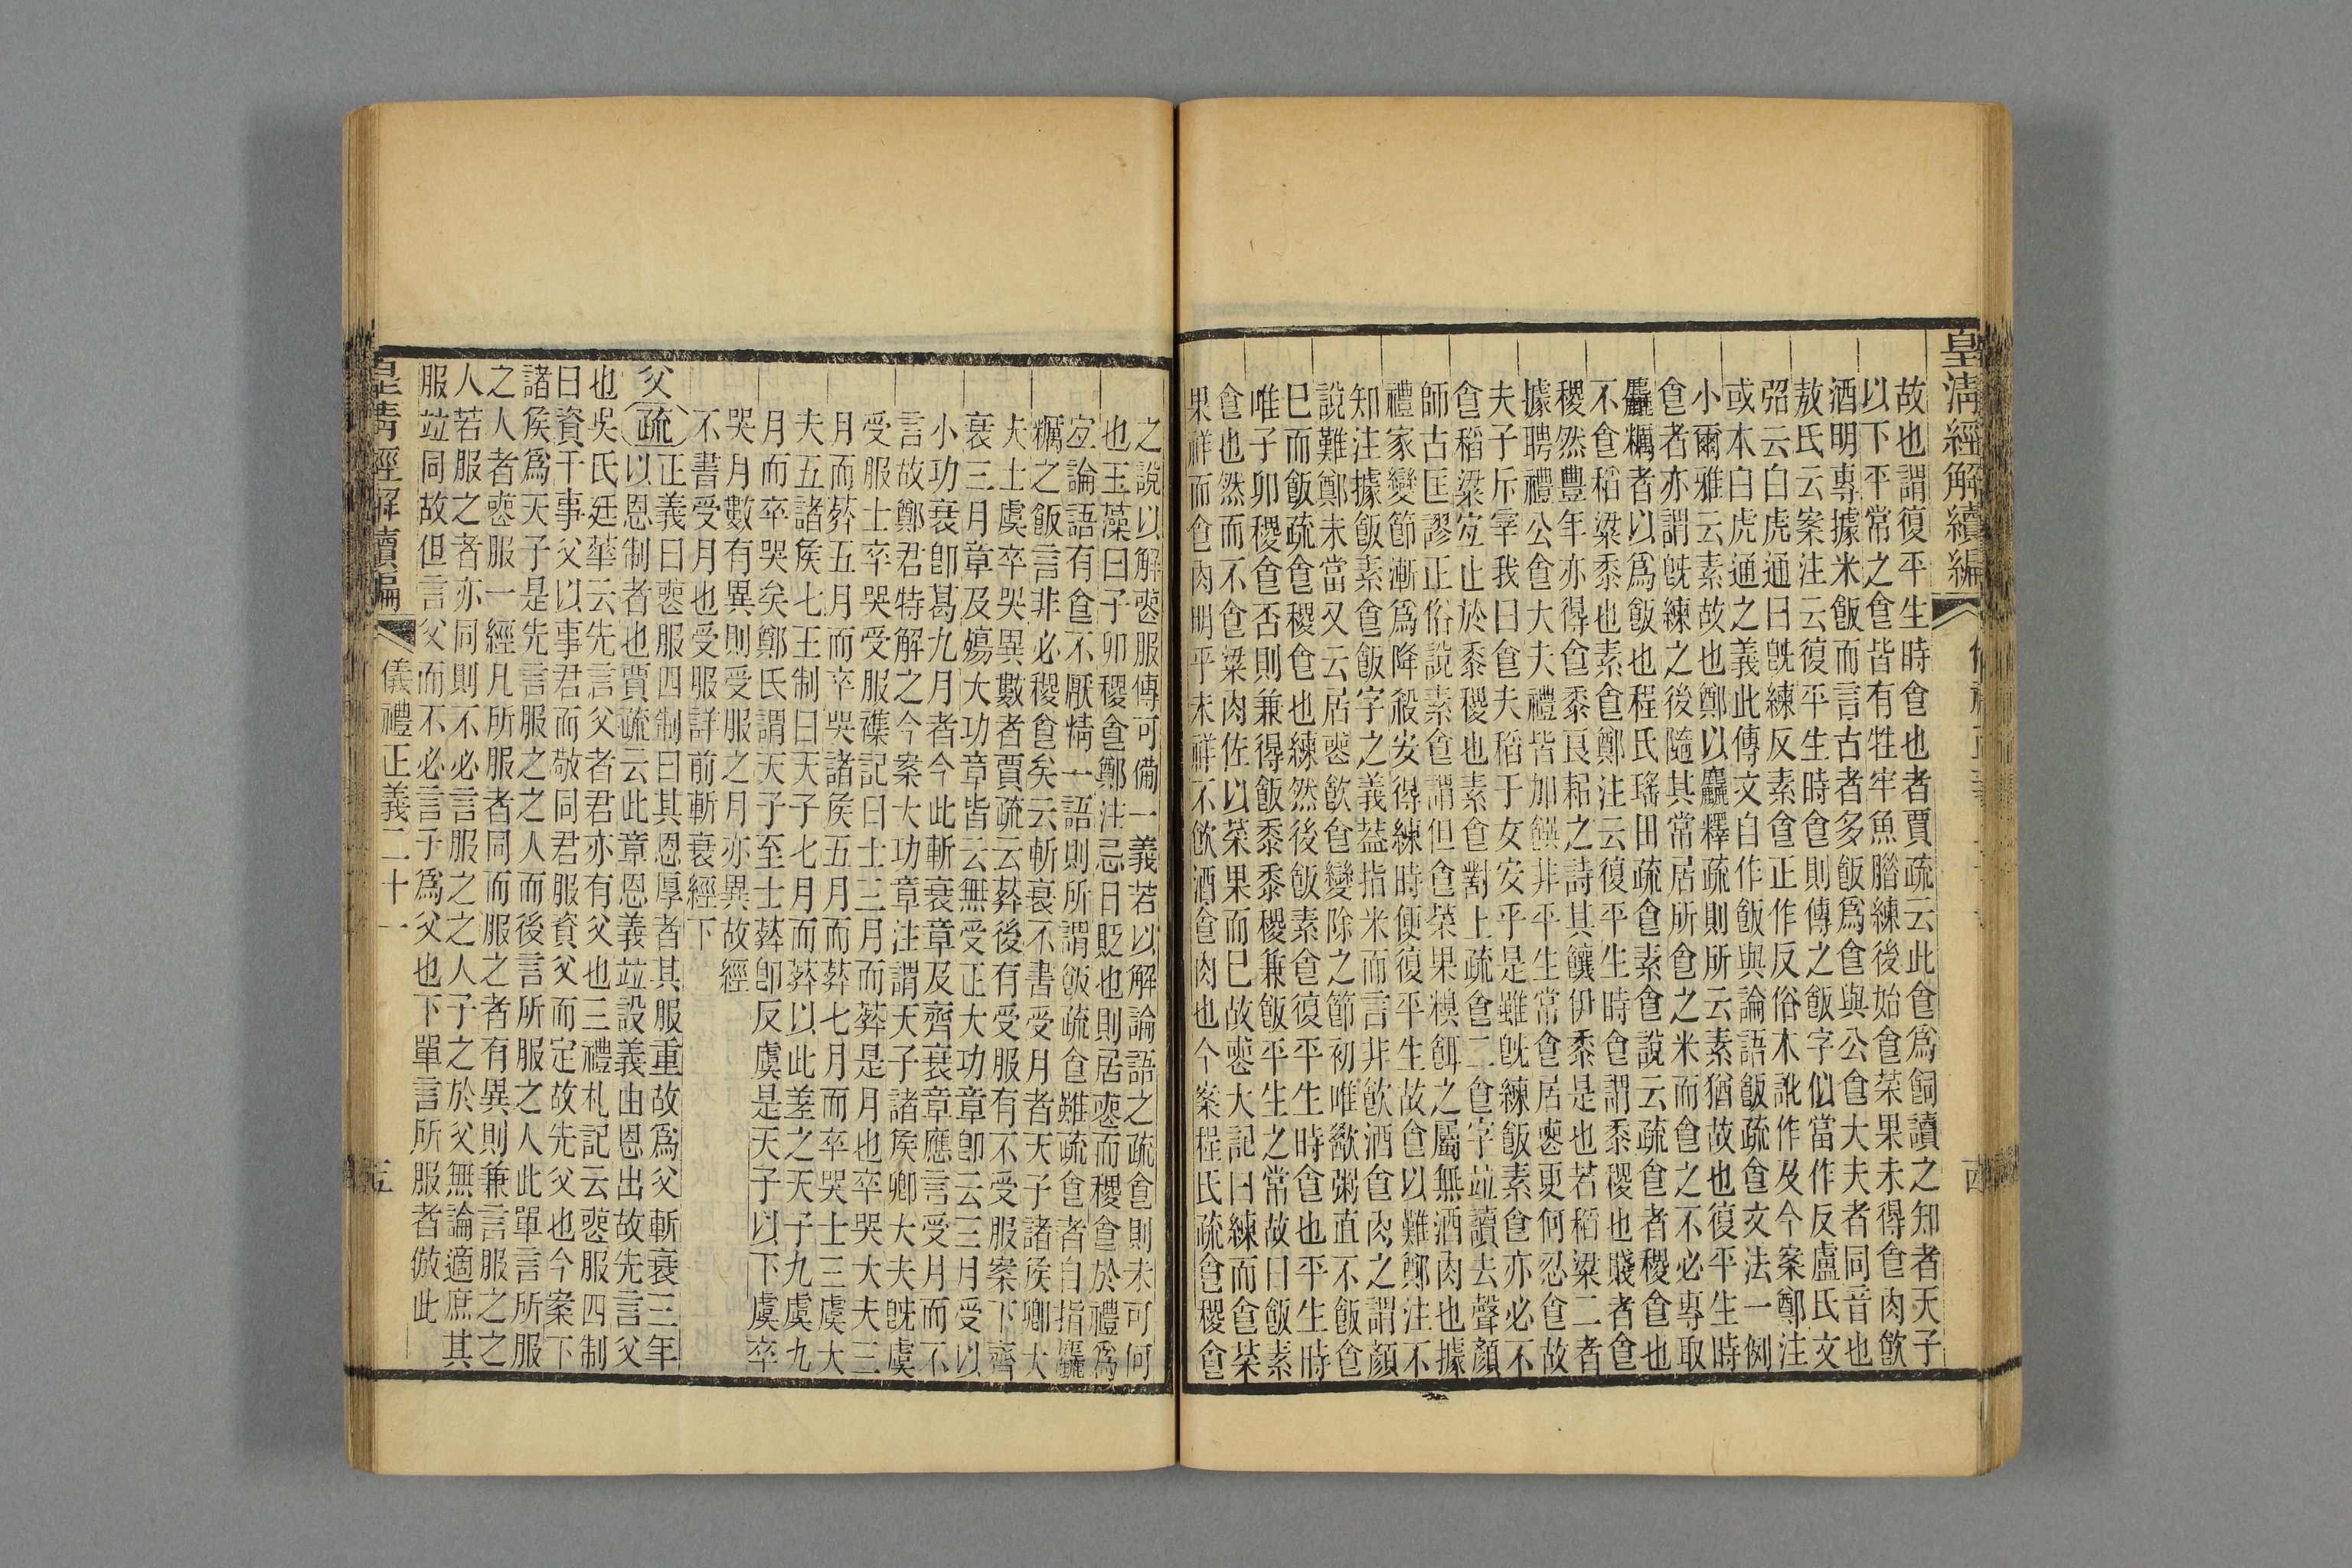 皇淸經解續編
故也謂復平生時𩚁也者賈疏云此𩚁爲飼讀之知者天子
以下平常之𩚁皆有牲牢魚腊練後始𩚁菜果未得𩚁肉飮
酒明專據米飯而言古者多飯爲𩚁與公𩚁大夫者同音也
敖氏云案注云復平生時𩚁則傳之飯字似當作反盧氏文
弨云白虎通曰旣練反素𩚁正作反俗本訛作及今案鄭注
或本白虎通之義此傳文自作飯與論語飯疏𩚁文法一例
小爾雅云素故也鄭以麤釋疏則所云素猶故也復平生時
𩚁者亦謂旣練之後隨其常居所𩚁之米而𩚁之不必專取
麤糲者以爲飯也程氏瑤田疏𩚁素𩚁說云疏𩚁者稷𩚁也
不𩚁稻粱黍也素𩚁鄭注云復平生時𩚁謂黍稷也賤者𩚁
稷然豐年亦得𩚁黍良耜之詩其饟伊黍是也若稻粱二者
據聘禮公𩚁大夫禮皆加饌非平生常𩚁居喪更何忍𩚁故
夫子斥宰我曰𩚁夫稻于女安乎是雖旣練飯素𩚁亦必不
𩚁稻粱宐止於黍稷也素𩚁對上疏𩚁二𩚁字竝讀去聲顏
師古匡謬正俗說素𩚁謂但𩚁菜果糗餌之屬無酒肉也據
禮家變節漸爲降殺安得練時便復平生故𩚁以難鄭注不
知注據飯素𩚁飯字之義葢指米而言非飮酒𩚁肉之謂顏
說難鄭未當又云居喪飮𩚁變除之節初唯歠粥直不飯𩚁
巳而飯疏𩚁稷𩚁也練然後飯素𩚁復平生時𩚁也平生時
唯子卯稷𩚁否則兼得飯黍黍稷兼飯平生之常故曰飯素
𩚁也然而不𩚁粱肉佐以菜果而巳故喪大記曰練而𩚁菜
果祥而𩚁肉明乎未祥不飮酒𩚁肉也今案程氏疏𩚁稷𩚁
之說以解喪服傳可備一義若以解論語之疏𩚁則未可何
也玉藻曰子卯稷𩚁鄭注忌日貶也則居喪而稷𩚁於禮爲
宐論語有𩚁不厭精一語則所謂飯疏𩚁雖疏𩚁者自指麤
糲之飯言非必稷𩚁矣云斬衰不書受月者天子諸侯卿大
夫士虞卒哭異數者賈疏云葬後有受服有不受服案下齊
衰三月章及殤大功章皆云無受正大功章卽云三月受以
小功衰卽葛九月者今此斬衰章及齊衰章應言受月而不
言故鄭君特解之今案大功章注謂天子諸侯卿大夫旣虞
受服士卒哭受服襍記曰士三月而葬是月也卒哭大夫三
月而葬五月而卒哭諸侯五月而葬七月而卒哭士三虞大
夫五諸侯七王制曰天子七月而葬以此差之天子九虞九
月而卒哭矣鄭氏謂天子至士葬卽反虞是天子以下虞卒
哭月數有異則受服之月亦異故經
不書受月也受服詳前斬衰經下
父疏正義曰喪服四制曰其恩厚者其服重故爲父斬衰三年
以恩制者也賈疏云此章恩義竝設義由恩出故先言父
也吳氏廷華云先言父者君亦有父也三禮札記云喪服四制
曰資于事父以事君而敬同君服資父而定故先父也今案下
諸侯爲天子是先言服之之人而後言所服之人此單言所服
之人者喪服一經凡所服者同而服之者有異則兼言服之之
人若服之者亦同則不必言服之之人子之於父無論適庶其
服竝同故但言父而不必言子爲父也下單言所服者倣此
皇淸經解續編
儀禮正義二十一